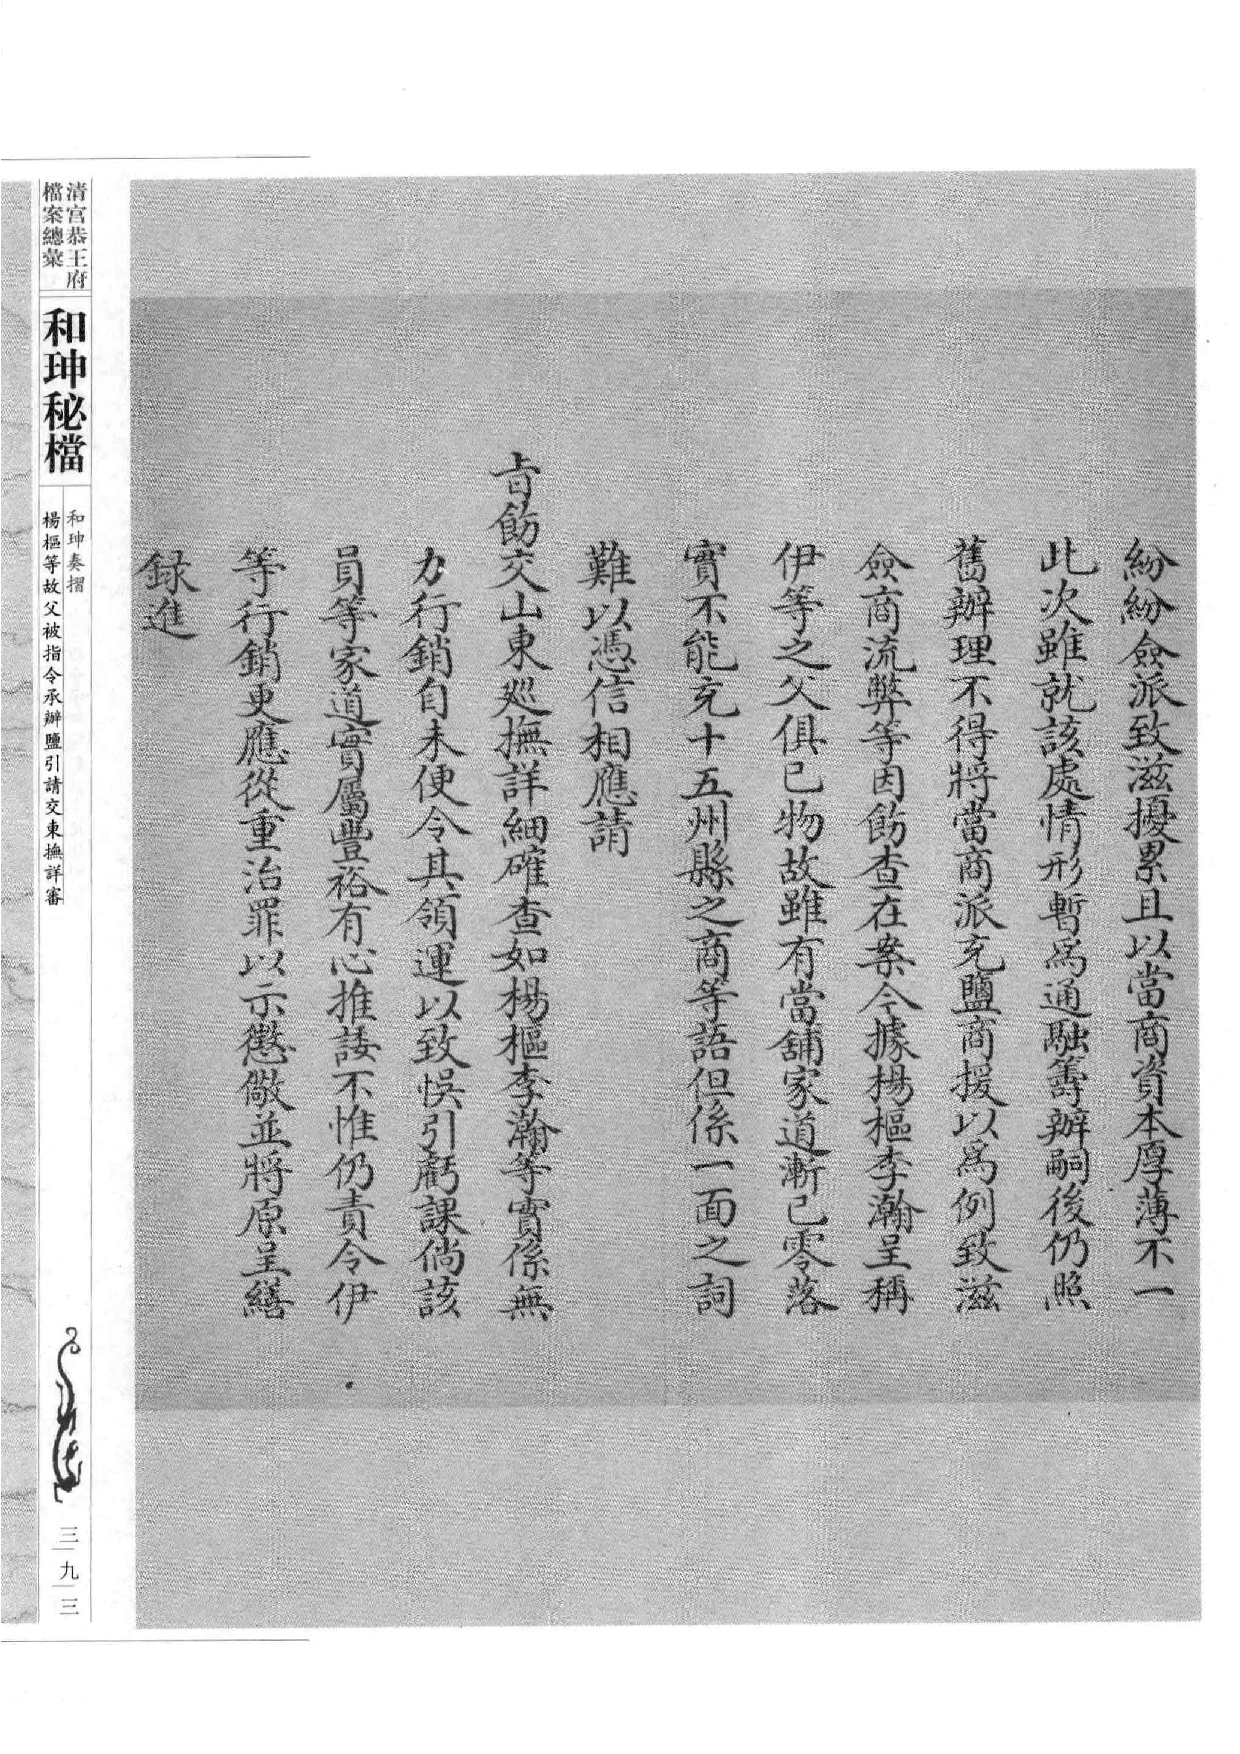 紛紛僉派致滋擾累且以當商資本厚薄不一
此次雖就該處情形暫爲通融籌辦嗣後仍照
舊辦理不得將當商派充鹽商援以爲例致滋
僉商流弊等因飭查在案今據楊樞李瀚呈稱
伊等之父俱已物故雖有當舖家道漸已零落
實不能充十五州縣之商等語但係一面之詞
難以憑信相應請
旨飭交山東廵撫詳細確查如楊樞李瀚等實係無
力行銷自未便令其領運以致悞引虧課倘該
員等家道實屬豐裕有心推諉不惟仍責令伊
等行銷更應從重治罪以示懲儆並將原呈繕
録進
清宮恭王府
檔案總彙
和珅秘檔
和珅奏摺
楊樞等故父被指令承辦鹽引請交東撫詳審
三九三